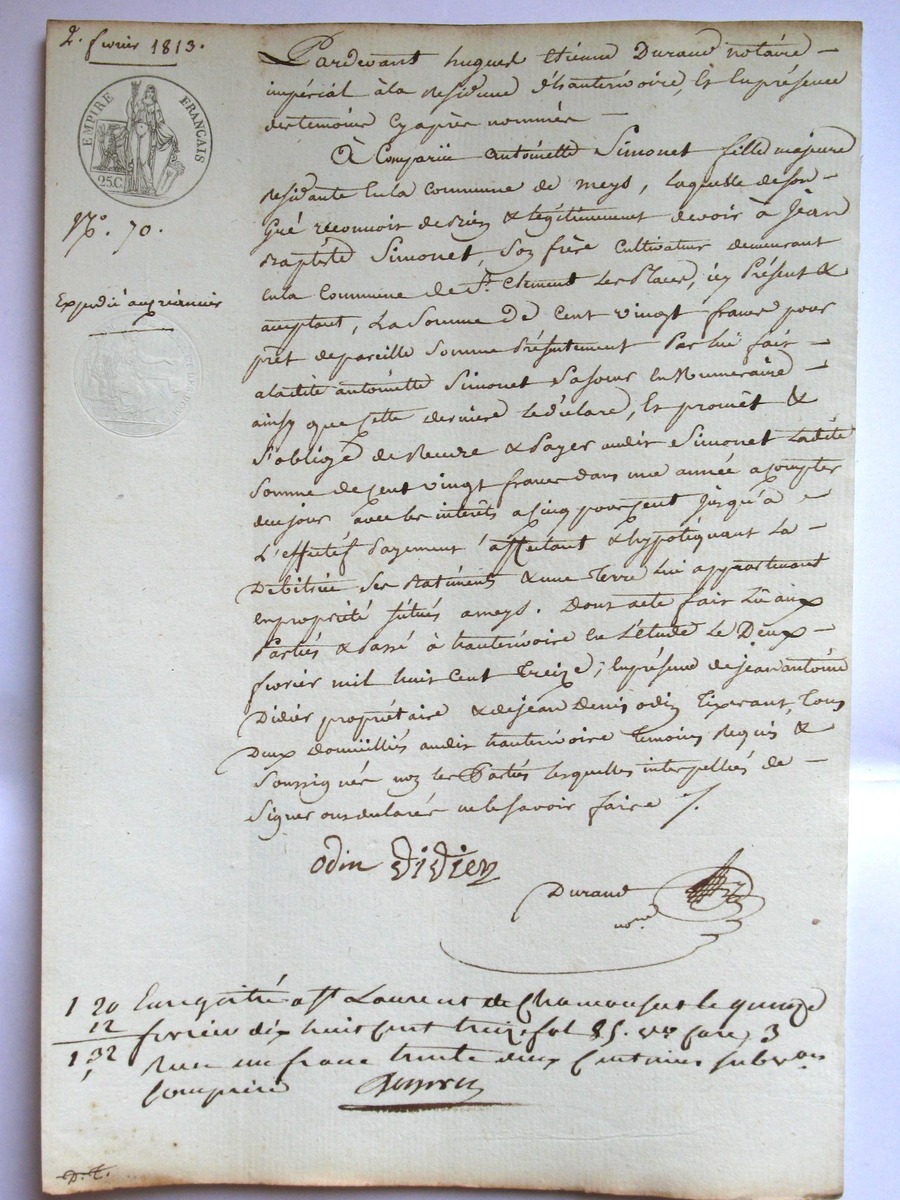 2. fevrier 1813.
EMPIRE FRANÇAIS
25.C.
N.º 70.
Expedié au créancier
Pardevant hugues Etienne Durand notaire
impérial à la residence d'hauterivoire, Et En présence
des temoins Cy après nommés
à Comparüe antoinette Simonet fille majeure
residante En la Commune de meys, laquelle de son
Gré reconnoit de bien & legitimement devoir à jean
Baptiste Simonet, Son frère Cultivateur demeurant
En la Commune de St. Clement Les Places, icy Présent &
acceptant, La Somme De Cent vingt francs pour
prêt de pareille Somme Présentement Par lui fait
a la dite antoinette Simonet Sa Soeur En Numeraire
ainsy que Cette derniere le déclare, Et promêt &
S'oblige de Rendre & Payer audit Simonet Ladite
Somme de Cent vingt francs dans une année a compter
de ce jour avec les interêts a Cinq pour Cent jusqu'à
L'effectif Payement affectant & hypotéquant La
Débitrice Ses Batiments & une Terre lui appartenant
en propriété situés a meys. Dont acte fait Lû aux
Parties & Passé à hauterivoire En L'étude Le Deux
fevrier mil huit Cent Treize, En présence de jean antoine
Didier propriétaire & de jean Denis odin Tixerant, Tous
Deux domiciliés audit hauterivoire Temoins Requis &
Soussignés non les Parties lesquelles interpellées de
Signer ont declaré ne le savoir faire /.
odin Didier
Durand
nore
1 20 Enregistré a St Laurent de Chamousset le quinze
12 fevrier dix huit Cent treize fol 85. vo Case 3
1,32 Reçu un franc trente deux Centimes subvon
Comprise
D.t.